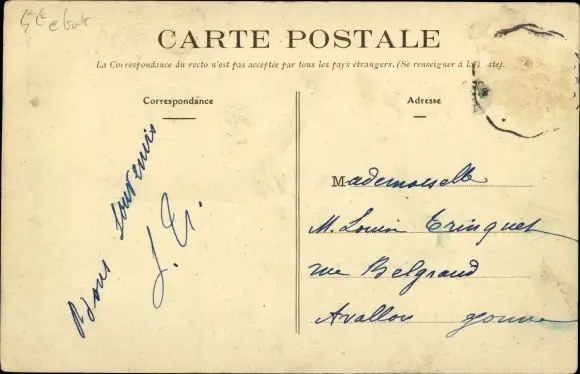 CARTE POSTALE
La Correspondance du recto n'est pas acceptée par tous les pays étrangers. (Se renseigner à la Poste).
Correspondance
Adresse
souvenirs
Mademoiselle
M. Louise
rue Belgrand
Avallon Yonne